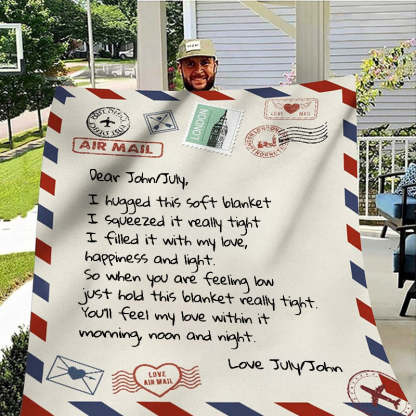 LONDON
AIR MAIL
Dear John/July,
I hugged this soft blanket
I squeezed it really tight
I filled it with my love,
happiness and light.
So when you are feeling low
just hold this blanket really tight.
You'll feel my love within it
morning, noon and night.
Love July/John
LOVE
AIR MAIL